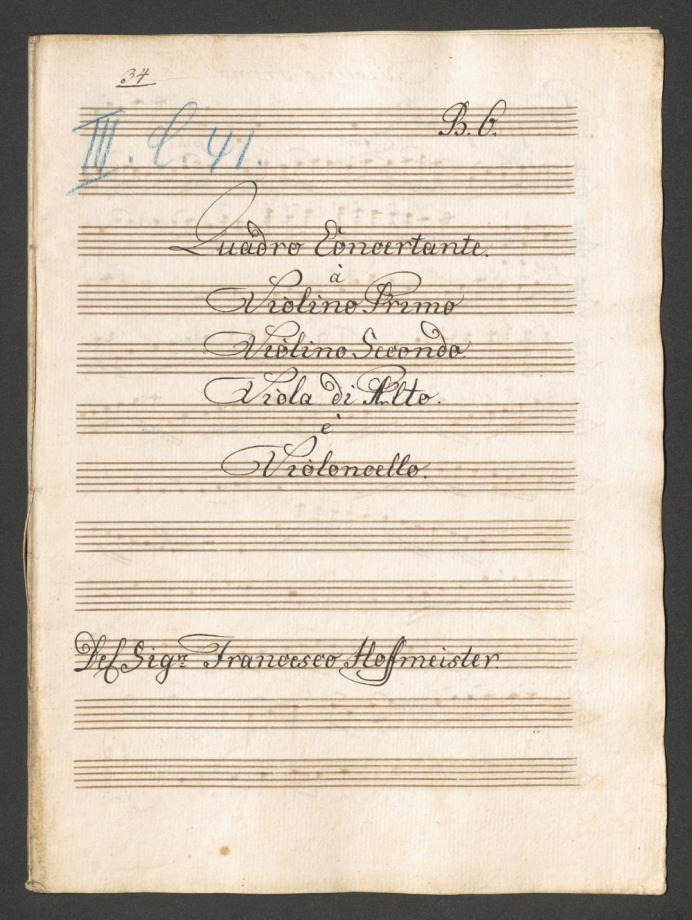 34
B. 6.
III. C. 41.
Quadro Concertante.
à
Violino Primo
Violino Secondo
Viola di Alto.
è
Violoncello.
Del Sigr. Francesco Hoffmeister.